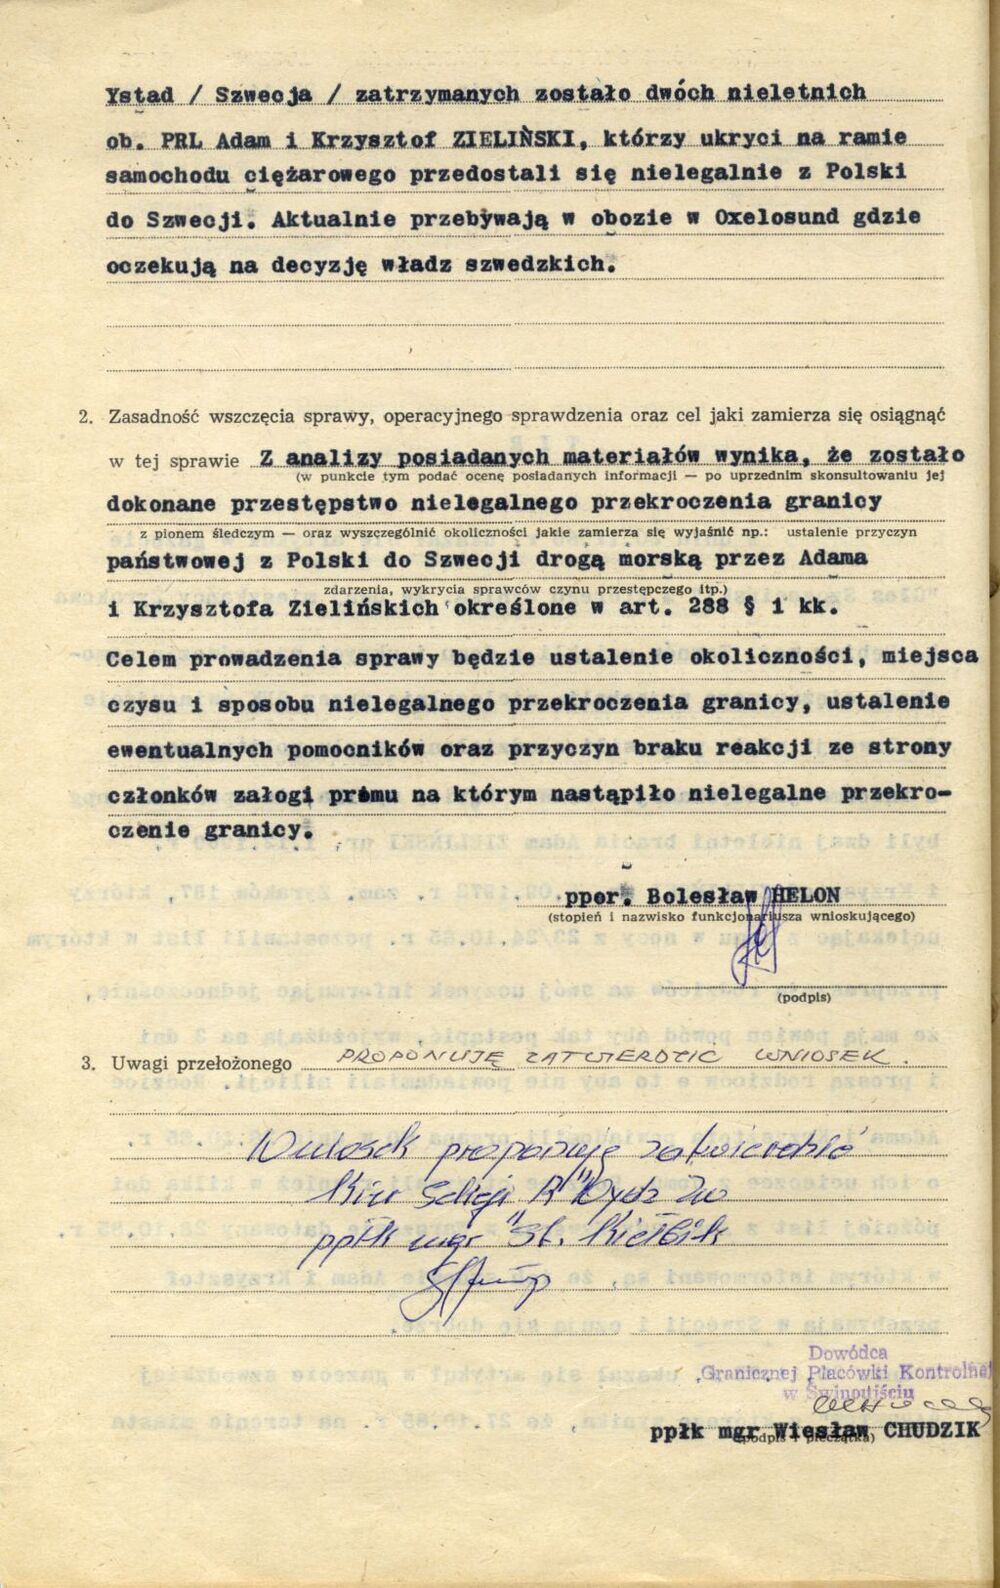 Ystad / Szwecja / zatrzymanych zostało dwóch nieletnich
ob. PRL Adam i Krzysztof ZIELIŃSKI, którzy ukryci na ramie
samochodu ciężarowego przedostali się nielegalnie z Polski
do Szwecji. Aktualnie przebywają w obozie w Oxelosund gdzie
oczekują na decyzję władz szwedzkich.
2. Zasadność wszczęcia sprawy, operacyjnego sprawdzenia oraz cel jaki zamierza się osiągnąć
w tej sprawie Z analizy posiadanych materiałów wynika, że zostało
(w punkcie tym podać ocenę posiadanych informacji — po uprzednim skonsultowaniu jej
dokonane przestępstwo nielegalnego przekroczenia granicy
z pionem śledczym — oraz wyszczególnić okoliczności jakie zamierza się wyjaśnić np.: ustalenie przyczyn
państwowej z Polski do Szwecji drogą morską przez Adama
zdarzenia, wykrycia sprawców czynu przestępczego itp.)
i Krzysztofa Zielińskich określone w art. 288 § 1 kk.
Celem prowadzenia sprawy będzie ustalenie okoliczności, miejsca
czysu i sposobu nielegalnego przekroczenia granicy, ustalenie
ewentualnych pomocników oraz przyczyn braku reakcji ze strony
członków załogi promu na którym nastąpiło nielegalne przekro-
czenie granicy.
ppor. Bolesław HELON
(stopień i nazwisko funkcjonariusza wnioskującego)
(podpis)
3. Uwagi przełożonego PROPONUJĘ ZATWIERDZIĆ WNIOSEK.
Wniosek proponuję zatwierdzić
ppłk mgr St. Kiełbik
Dowódca
Granicznej Placówki Kontrolnej
w Świnoujściu
ppłk mgr Wiesław CHUDZIK
(podpis i pieczątka)